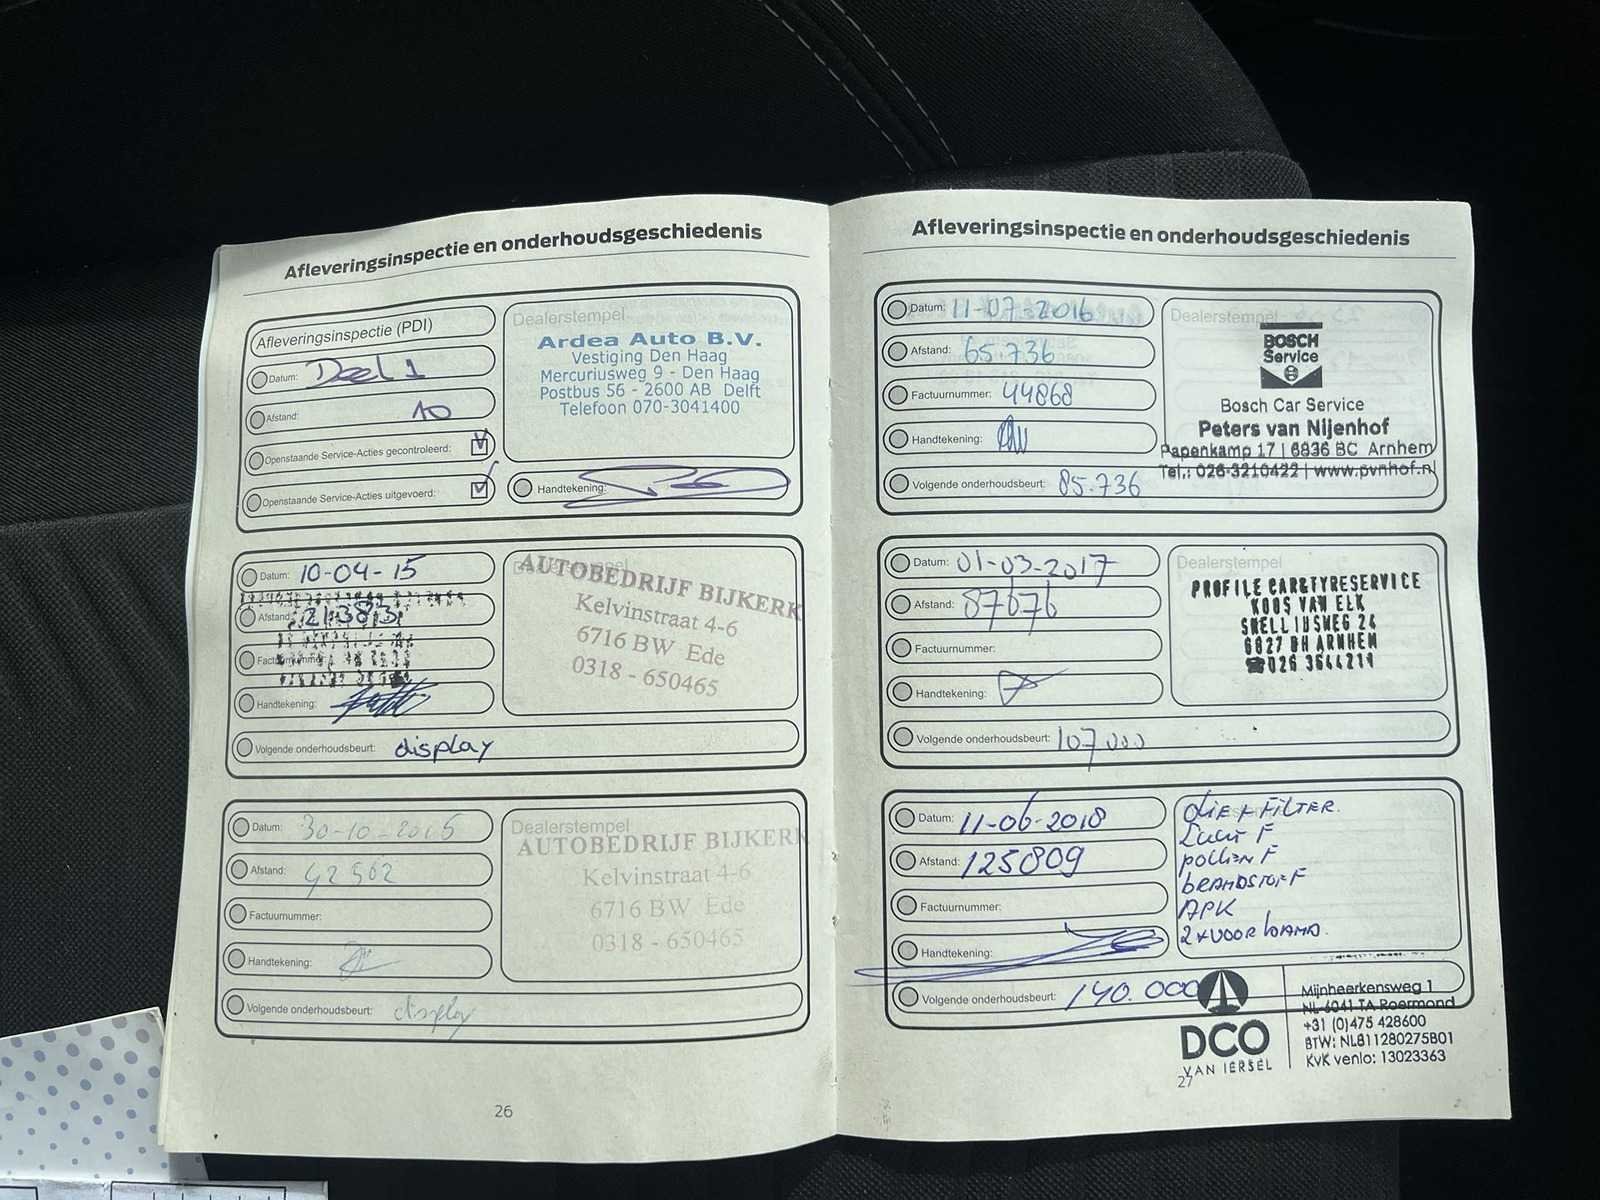 Afleveringsinspectie en onderhoudsgeschiedenis
Afleveringsinspectie (PDI)
Datum: Deel 1
Afstand: 10
Openstaande Service-Acties gecontroleerd:
Openstaande Service-Acties uitgevoerd:
Dealerstempel
Ardea Auto B.V.
Vestiging Den Haag
Mercuriusweg 9 - Den Haag
Postbus 56 - 2600 AB Delft
Telefoon 070-3041400
Handtekening:
Datum: 10-04-15
Afstand: 21.383
Factuurnummer:
Handtekening:
Volgende onderhoudsbeurt: display
AUTOBEDRIJF BIJKERK
Kelvinstraat 4-6
6716 BW Ede
0318 - 650465
Datum: 30-10-2015
Afstand: 42502
Factuurnummer:
Handtekening:
Volgende onderhoudsbeurt: display
Dealerstempel
AUTOBEDRIJF BIJKERK
Kelvinstraat 4-6
6716 BW Ede
0318 - 650465
26
Afleveringsinspectie en onderhoudsgeschiedenis
Datum: 11-07-2016
Afstand: 65.736
Factuurnummer: 44868
Handtekening:
Volgende onderhoudsbeurt: 85.736
Dealerstempel
BOSCH
Service
Bosch Car Service
Peters van Nijenhof
Papenkamp 17 | 6836 BC Arnhem
Tel.: 026-3210422 | www.pvnhof.nl
Datum: 01-03-2017
Afstand: 87676
Factuurnummer:
Handtekening:
Volgende onderhoudsbeurt: 107000
Dealerstempel
PROFILE CAR&TYRESERVICE
KOOS VAN ELK
SNELLIUSWEG 24
6827 DH ARNHEM
☎026 3644211
Datum: 11-06-2018
Afstand: 125809
Factuurnummer:
Handtekening:
Volgende onderhoudsbeurt: 140.000
OLIE + FILTER.
Lucht F
pollen F
brandstof F
APK
2x voorband.
DCO
VAN IERSEL
Mijnheerkensweg 1
NL-6041 TA Roermond
+31 (0)475 428600
BTW: NL811280275B01
KvK venlo: 13023363
27